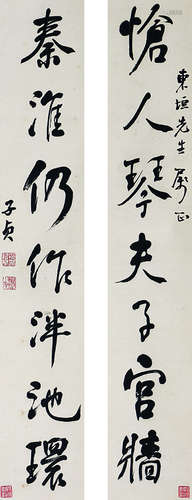 東垣先生屬正
愴人琴夫子宮牆
秦淮仍作泮池環
子貞